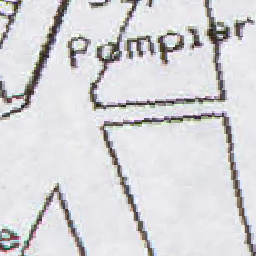 Pompier
e